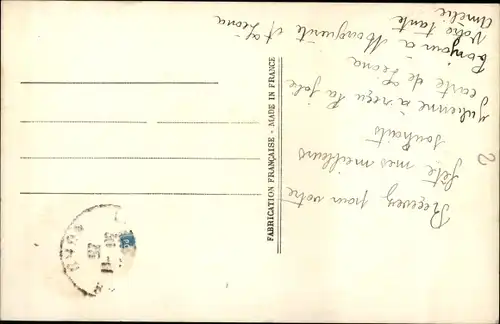 Recevez pour votre
fête mes meilleurs
souhaits
Julienne à reçu la jolie
carte de Léona
Bonjour à Marguerite et Léona
Votre tante
Amélie
FABRICATION FRANÇAISE - MADE IN FRANCE
2